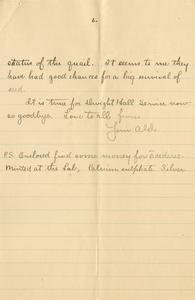 6.
status of the quail. It seems to me they
have had good chances for a big survival of
seed.
It is time for Dwight Hall Service now
so goodbye. Love to all from
P.S. Enclosed find some money for
Minted at the Lab, Calcium sulphate Silver